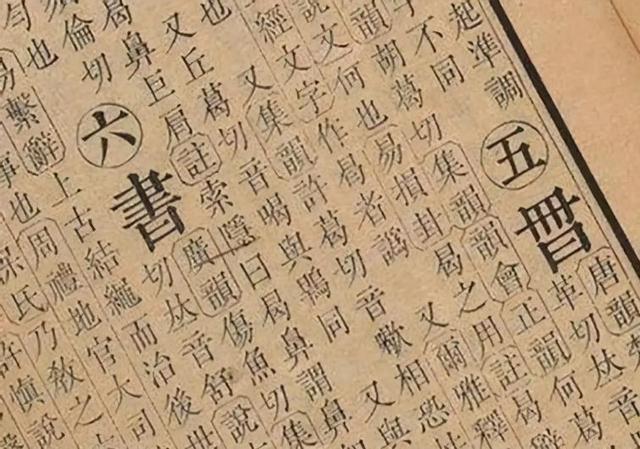 起準調
五
唐韻
革切𠀤音
不同
胡葛切集韻韻會正韻何葛
何也易損卦曷之用註曷
又爾雅釋
說文
經文字作曷者譌
又相恐
又集韻許葛切音歇
又丘葛切音喝與鶡同
又與
曷鼻巨肩註索隱曰曷鼻謂鼻
倫切
六
書
廣韻傷魚切集
切𠀤音舒說
也
易繫辭上古結繩而治後世
事也
周禮地官大司
保氏乃教之
許慎說